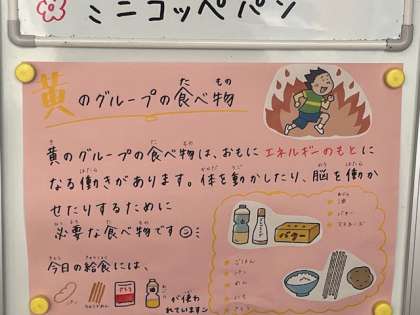 ミニコッペパン
黄のグループの食べ物
黄のグループの食べ物は、おもにエネルギーのもとに
なる働きがあります。体を動かしたり、脳を働か
せたりするために
必要な食べ物です
今日の給食には、
が使わ
れています
バター
油
バター
マヨネーズ
ごはん
パン
めん
いも
さとう